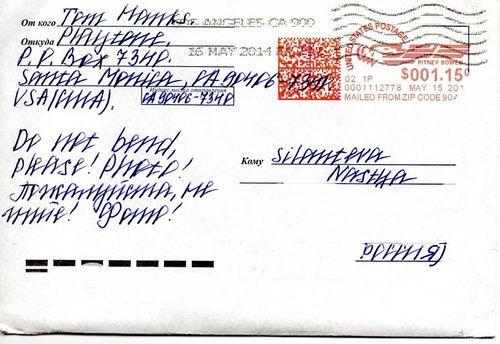 От кого Tem Hanes
LOS ANGELES CA 900
Откуда Playtene,
16 MAY 2014
P.P. Box 7340.
Santa Monica, CA 90406-7340.
USA(США).
CA 90406-7340
UNITED STATES POSTAGE
PITNEY BOWES
02 1P
$001.15⁰
0001112778 MAY 15 201
MAILED FROM ZIP CODE 904
Do not bend,
please! Photo!
пожалуйста, не
гните! Фото!
Кому Silanteva
Nastya
РОССИЯ